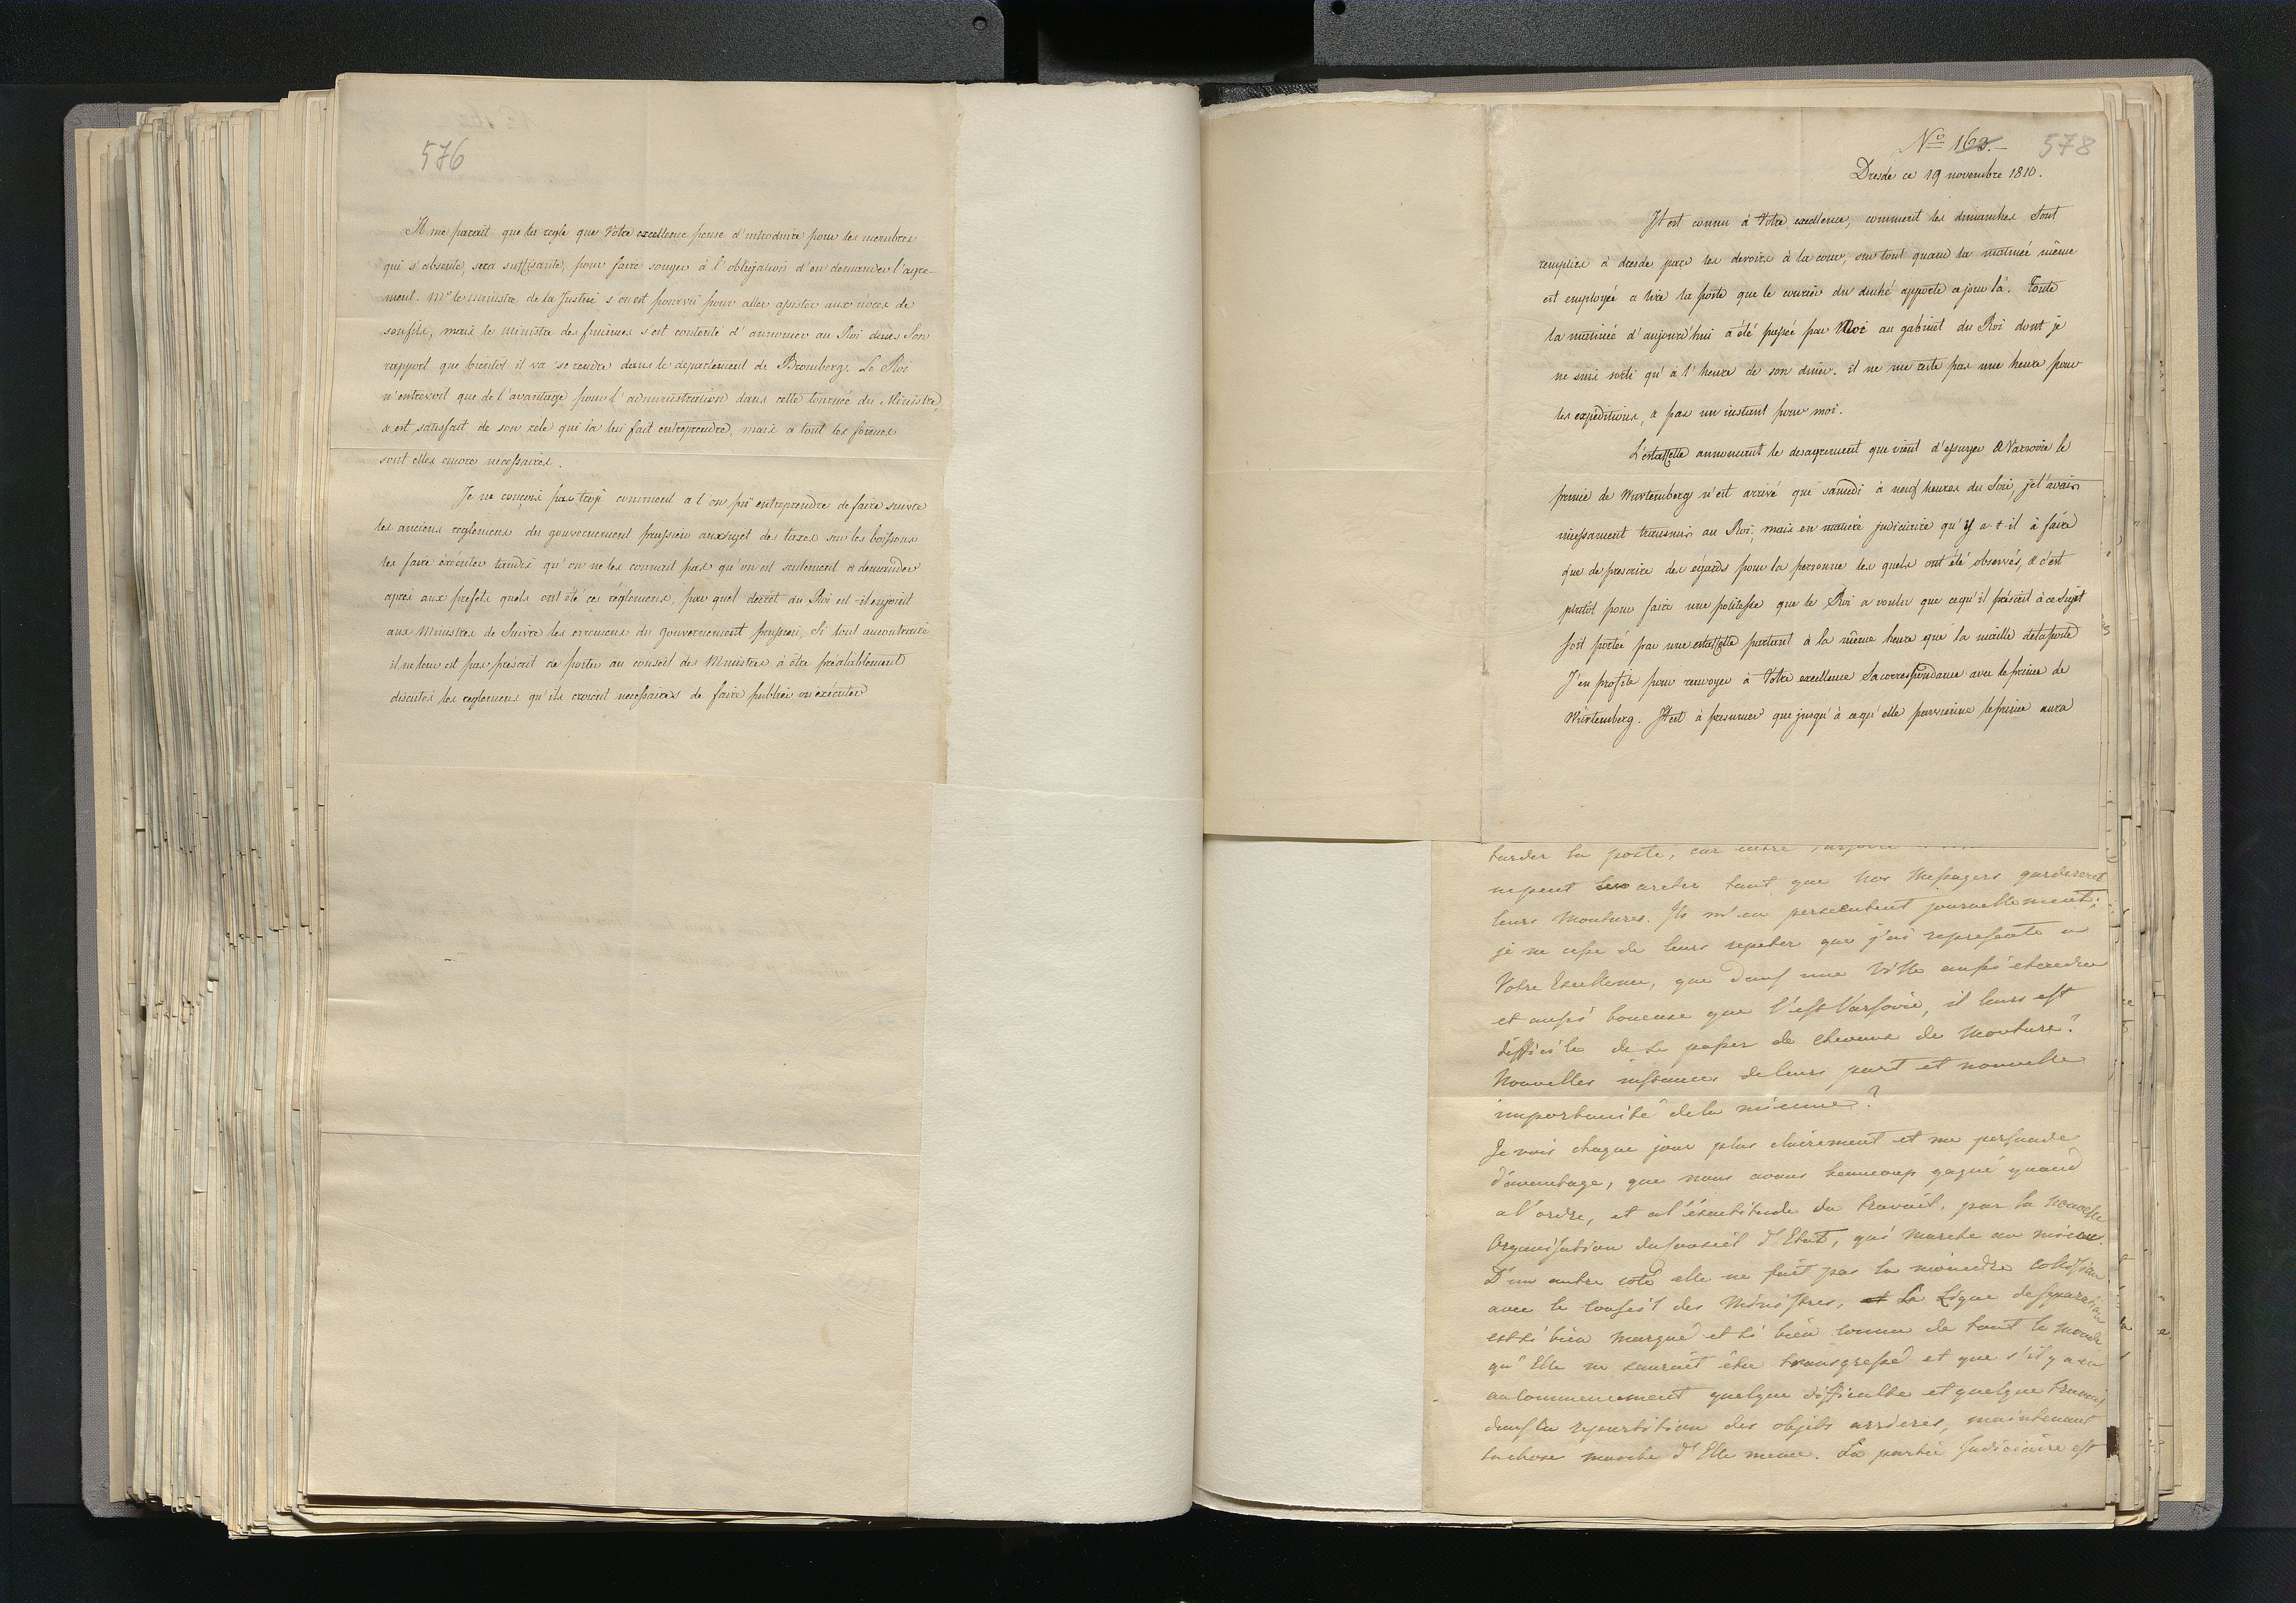 576
Il me parait que la regle que Votre excellence pense d'introduire pour les membres
qui s'absente, sera suffisante, pour faire songer à l'obligation d'en demander l'agre-
ment. Mr le ministre de la Justice s'en est pourvu pour aller assister aux noces de
son fils, mais le ministre des finances s'est contenté d'annoncer au Roi dans Son
rapport que bientot il va se rendre dans le departement de Bromberg. Le Roi
n'entrevoit que de l'avantage pour l'administration dans cette tournée du Ministre,
& est satisfait de son zéle qui la lui fait entreprendre, mais a tout les formes
sont elles encore necessaires.
Je ne conçois pas trop comment a t'on pû entreprendre de faire suivre
les anciens reglemens du gouvernement prussien au sujet des taxes sur les boissons
les faire éxécuter tandis qu'on ne les connait pas qu'on est seulement à demander
après aux prefets quels ont été ces réglemens, par quel decrét du Roi est-il enjoint
aux Ministres de Suivre les erremens du gouvernement prussien, Si tout au contraire
il ne leur est pas préscrit de porter au conseil des Ministres à être préalablement
discutés les reglemens qu'ils croient necessaires de faire publier ou éxécuter
No 163.
578
Dresde ce 19 novembre 1810.
Il est connu à Votre excellence, comment les dimanches Sont
remplies à dresde par les devoirs à la cour, sur tout quand la matinée même
est employée a lire la poste que le courier du duché apporte ce jour là. Toute
la matinée d'aujourd'hui a été passée par Moi au gabinet du Roi dont je
ne suis sorti qu'à l'heure de son diner. il ne me reste pas une heure pour
les expeditions, & pas un instant pour moi.
L'estaffette annoncant le desagrement que vient d'essuyer à Varsovie le
prince de Wurtemberg n'est arrivé que samedi à neuf heures du Soir, je l'avais
incessament transmis au Roi, mais en matière judiciaire qu'y a-t-il à faire
que de prescrire des égards pour la personne les quels ont été observés, & c'est
plutôt pour faire une politesse que le Roi a voulu que ce qu'il préscrit à ce Sujet
soit portée par une estaffette partant à la même heure que la malle de la poste
J'en profite pour renvoyer à Votre excellence Sa correspondance avec le prince de
Würtemberg. Il est à presumer que jusqu'à ce qu'elle parvienne le prince aura
tarder la poste, car
ne peut les areter tant que Nos Messagers garderont
leurs Montures. Ils m'en persecutent journellement;
je ne cesse de leurs repeter que j'ai represente a
Votre Excellence, que dans une Ville aussi etendue
et aussi boueuse que l'est Varsovie, il leurs est
difficile de se passer de chevaux de Monture?
Nouvelles instances de leurs part et nouvelle
importunité de la mienne?
Je vois chaque jour plus clairement et me persuade
d'avantage, que nous avons beaucoup gagné quand
a l'ordre, et a l'exactitude du travail, par la nouvelle
Organisation du Conseil d'Etat, qui marche au mieux.
D'un autre coté elle ne fait pas la moindre collision
avec le Conseil des Ministres, La Ligne de separation
est si bien marqué et si bien connu de tout le monde
qu'Elle ne sauroit être transgressé et que s'il y a eu
au commencement quelque difficulte et quelque travail
dans la repartition des objets arrierés, maintenant
la chose marche d'Elle meme. La partie Judiciaire est